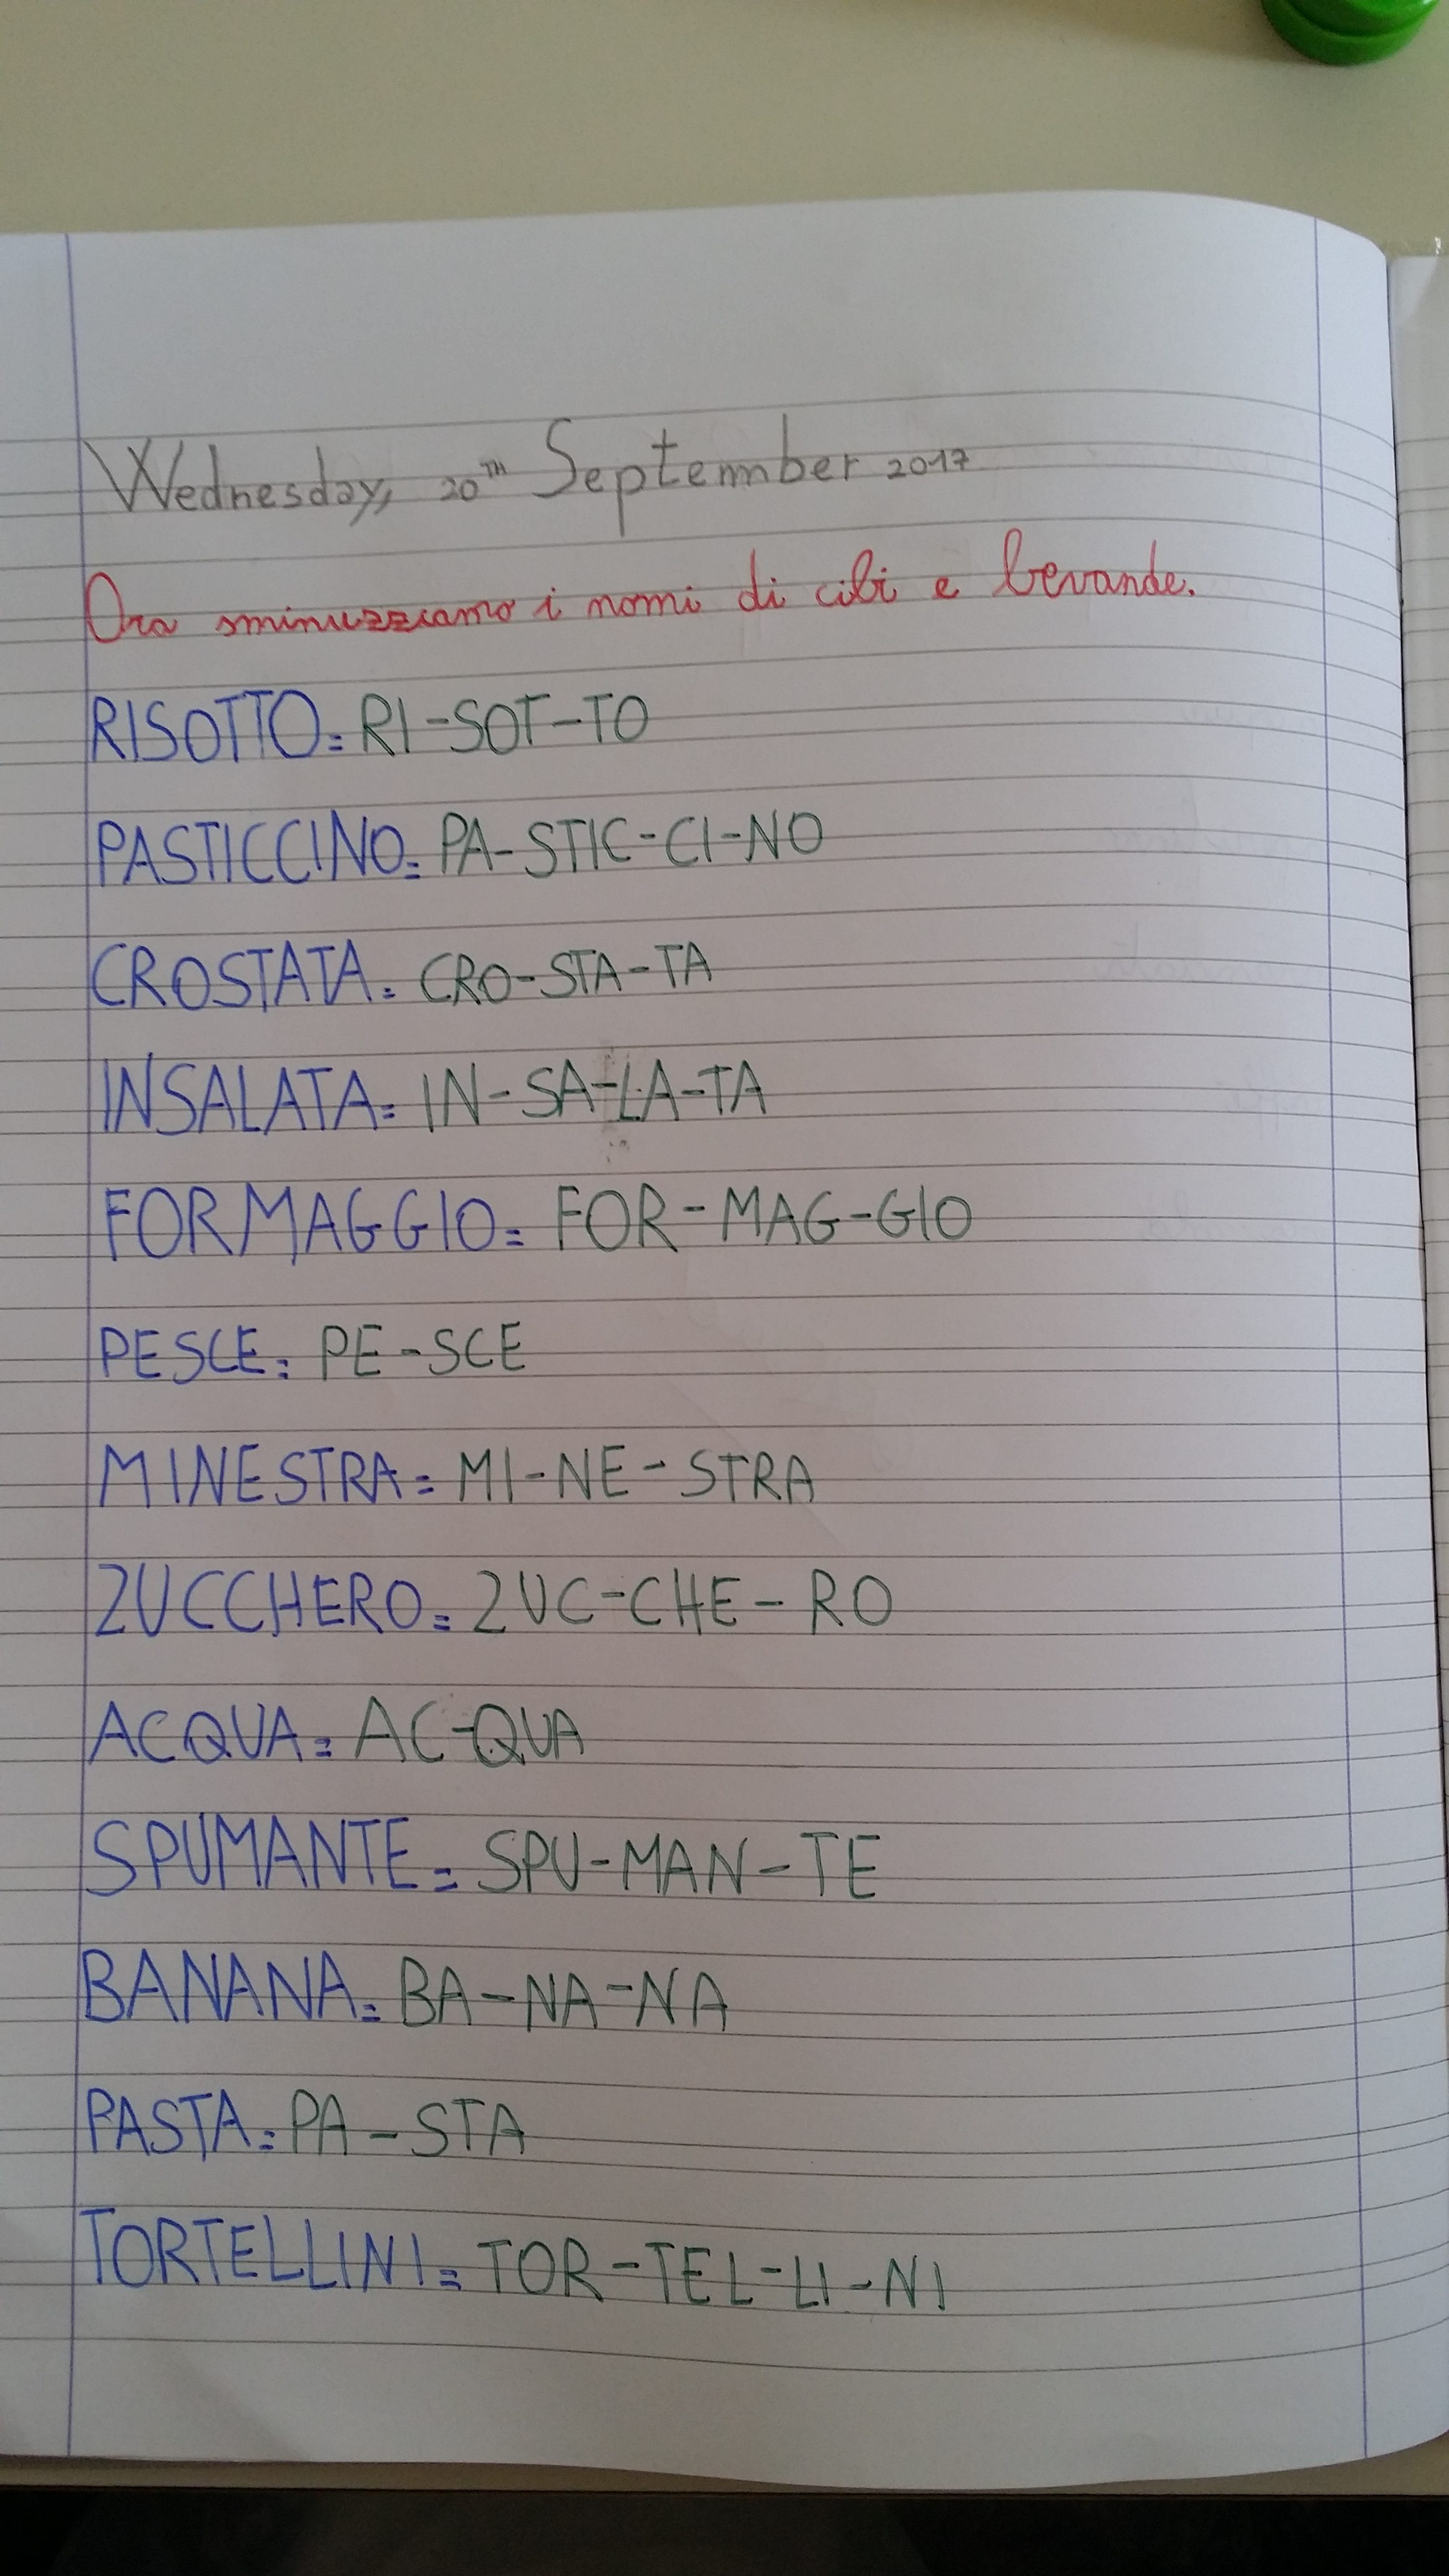 Wednesday, 20TH September 2017
Ora sminuzziamo i nomi di cibi e bevande.
RISOTTO= RI-SOT-TO
PASTICCINO= PA-STIC-CI-NO
CROSTATA= CRO-STA-TA
INSALATA= IN-SA-LA-TA
FORMAGGIO= FOR-MAG-GIO
PESCE= PE-SCE
MINESTRA= MI-NE-STRA
ZUCCHERO= ZUC-CHE-RO
ACQUA= AC-QUA
SPUMANTE= SPU-MAN-TE
BANANA= BA-NA-NA
PASTA= PA-STA
TORTELLINI= TOR-TEL-LI-NI